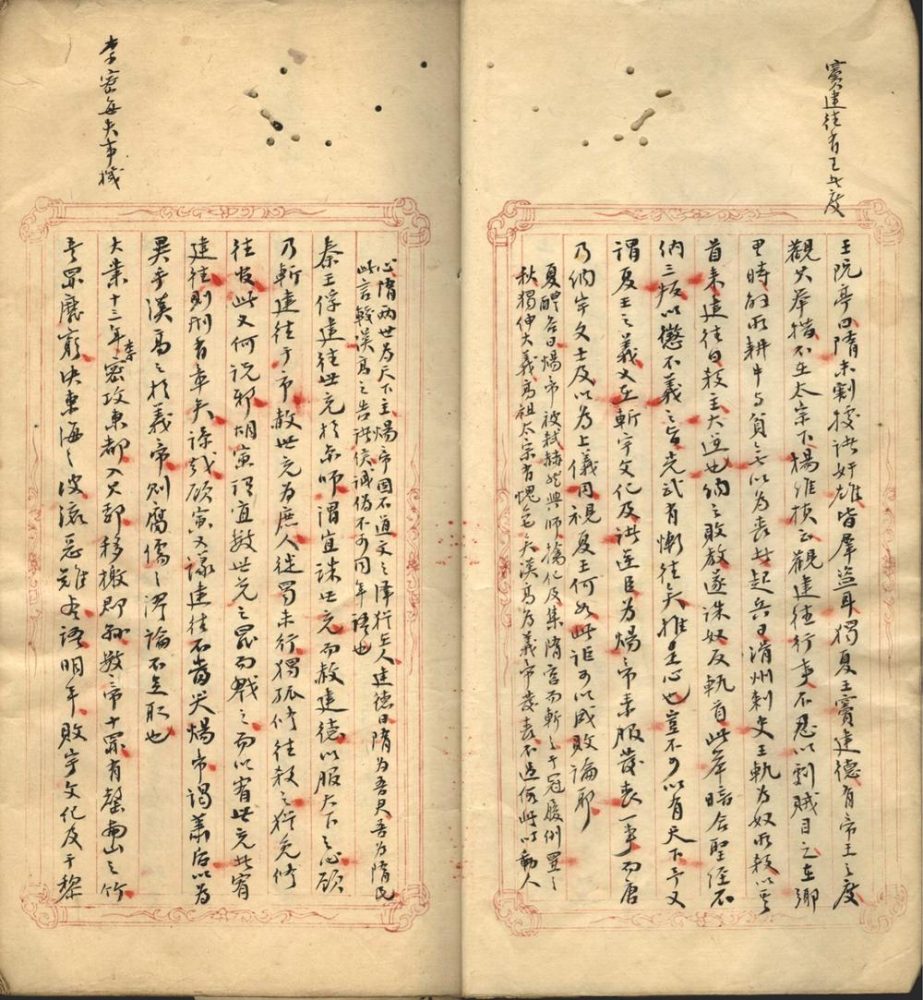 竇建德有王者度
王阮亭曰隋末割據諸奸雄皆羣盜耳獨夏王竇建德有帝王之度
觀其舉措不在太宗下楊維楨正觀建德行事不忍以剽賊目之在鄉
里時即解耕牛與貧者以為喪其起兵日滑州刺史王軌為奴所殺以
首来建德曰殺主大逆也納之敗教遂誅奴反軌首此舉暗合聖經不
納三叛以懲不義之旨光武有慚德矣推是心也豈不可以有天下乎又
謂夏王之義又在斬宇文化及誅逆臣為煬帝素服發喪一事而唐
乃納宇文士及以為上儀同視夏王何如此詎可以成敗論耶
夏醴谷曰煬帝被弒赫然興師擒化及集隋宫而斬之于冠履倒置之
秋獨伸大義高祖太宗有愧色矣漢高為義帝發喪不過假此以動人
李密每失事機
心隋兩世為天下主煬帝固不道文之澤猶在人建德曰隋為吾君吾為隋民
此言較漢高之告諸侯誠偽不可同年語也
秦王俘建德世充於京師謂宜誅世充而赦建德以服天下之心顧
乃斬建德于市赦世充為庶人徙蜀未行獨孤修德殺之猶免修
德官此又何說邪胡寅謂宜數世充之罪而戮之而以宥世充者宥
建德則刑有章矣諒哉顧寅又議建德不當哭煬帝謁蕭后以為
異乎漢高之於義帝則腐儒之謬論不足取也
大業十三年李密攻東都入其郛移檄郡縣數帝十罪有罄南山之竹
書罪靡窮決東海之波流惡難盡語明年敗宇文化及于黎